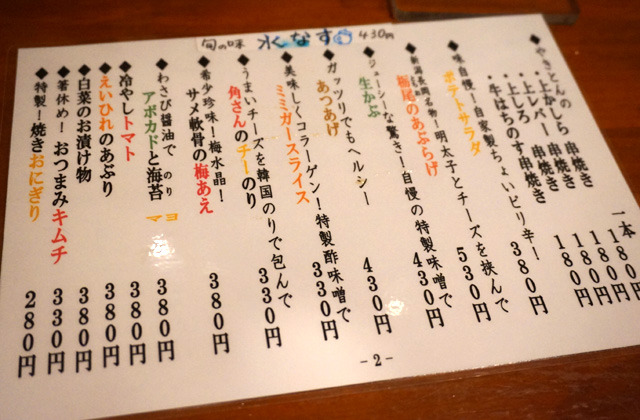 旬の味 水なす 430円
◆やきとんの
・上かしら 串焼き 一本180円
・上レバー 串焼き 180円
・上しろ 串焼き 180円
・牛はちのす串焼き 180円
◆味自慢！自家製ちょいピリ辛！
ポテトサラダ 380円
◆新潟長岡名物！明太子とチーズを挟んで
栃尾のあぶらげ 530円
◆ジューシーな驚き！自慢の特製味噌で
生かぶ 430円
◆ガッツリでもヘルシー
あつあげ 430円
◆美味しくコラーゲン！特製酢味噌で
ミミガースライス 330円
◆うまいチーズを韓国のりで包んで
角さんのチーのり 330円
◆希少珍味！梅水晶！
サメ軟骨の梅あえ 380円
◆わさび醤油で のりマヨ
アボカドと海苔 380円
◆冷やしトマト 380円
◆えいひれのあぶり 380円
◆白菜のお漬け物 380円
◆箸休め！おつまみキムチ 330円
◆特製！焼きおにぎり 280円
-2-